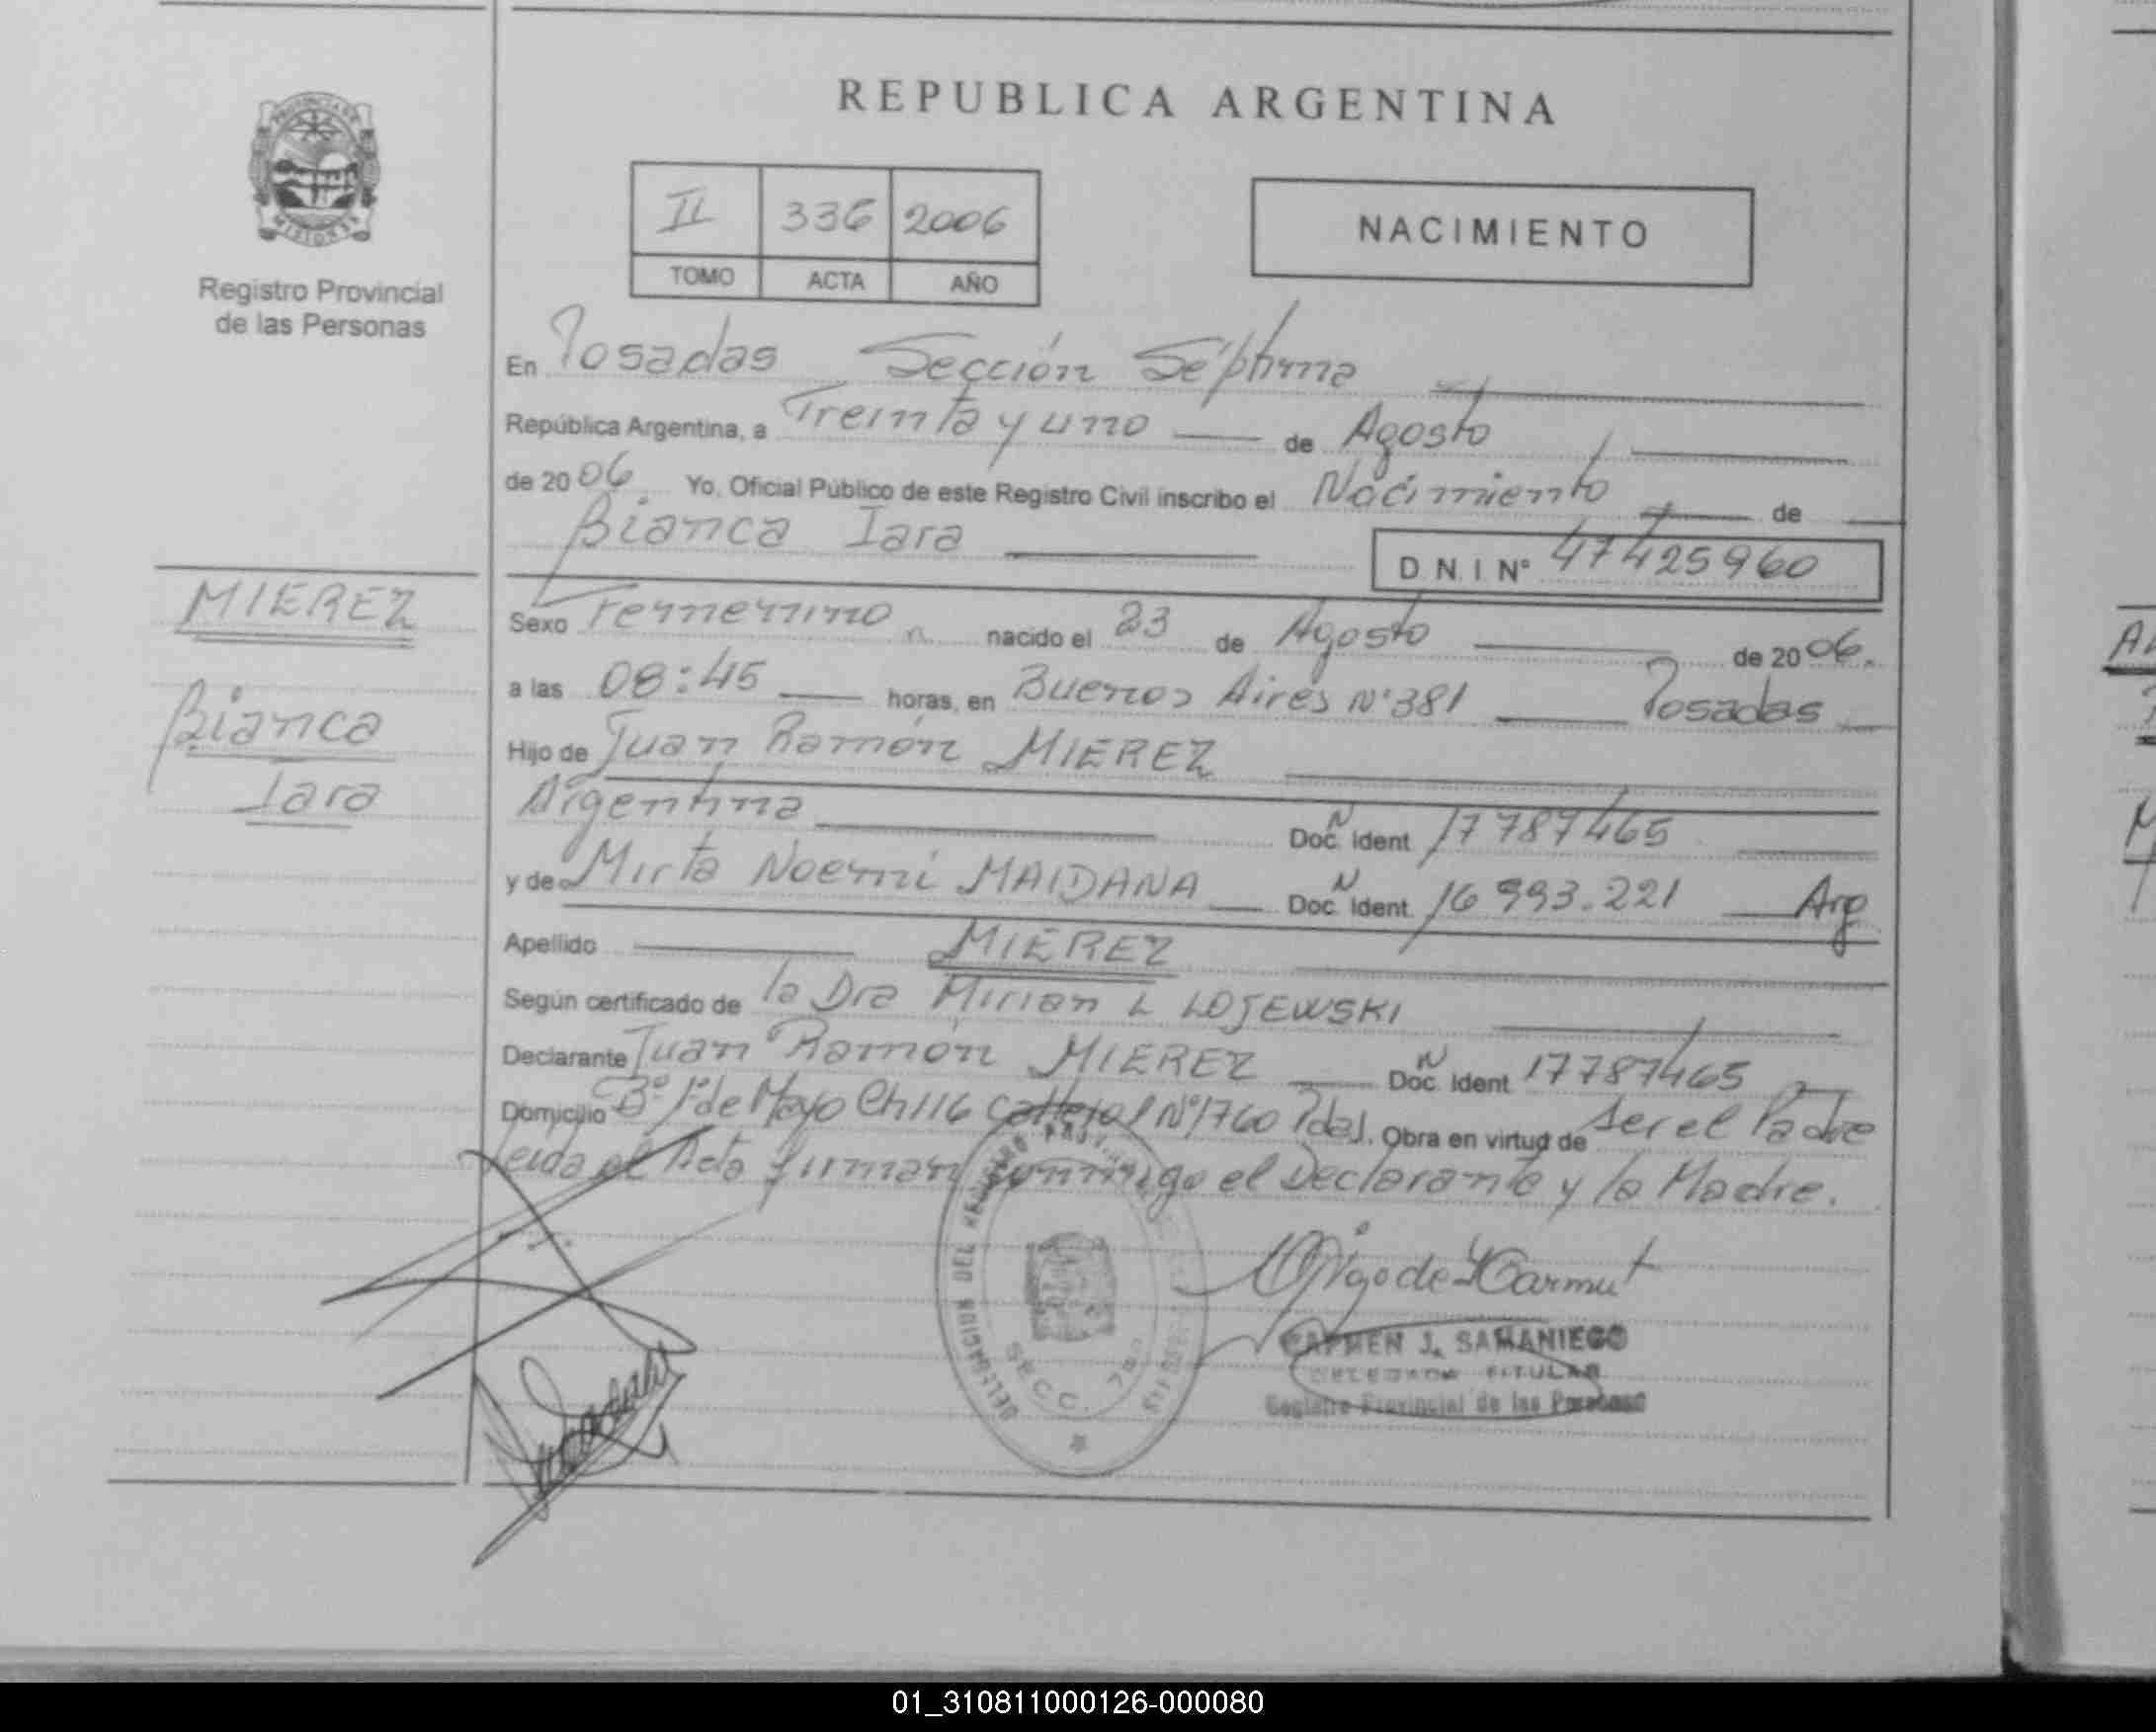 REPUBLICA ARGENTINA
PROVINCIA DE
MISIONES
Registro Provincial
de las Personas
II 336 2006
TOMO ACTA AÑO
NACIMIENTO
En Posadas Sección Séptima
República Argentina, a Treinta y uno de Agosto
de 2006. Yo, Oficial Público de este Registro Civil inscribo el Nacimiento de
Bianca Iara
D N I Nº 47425960
MIEREZ
Bianca
Iara
Sexo Femenino nacido el 23 de Agosto de 2006.
a las 08:45 horas, en Buenos Aires Nº 381 Posadas
Hijo de Juan Ramón MIEREZ
Argentina Doc. Ident 17787465
y de Mirta Noemí MAIDANA Doc. Ident. 16993.221 Arg
Apellido MIEREZ
Según certificado de la Dra Mirian L LOJEWSKI
Declarante Juan Ramón MIEREZ Doc. Ident 17787465
Domicilio Bº 1º de Mayo Ch 116 Nº 1760 Pdas. Obra en virtud de ser el Padre
Leida el Acta firman conmigo el Declarante y la Madre.
DELEGACION DEL REGISTRO
SECC. 7
CARMEN J. SAMANIEGO
DELEGADA TITULAR
Registro Provincial de las Personas
01_310811000126-000080